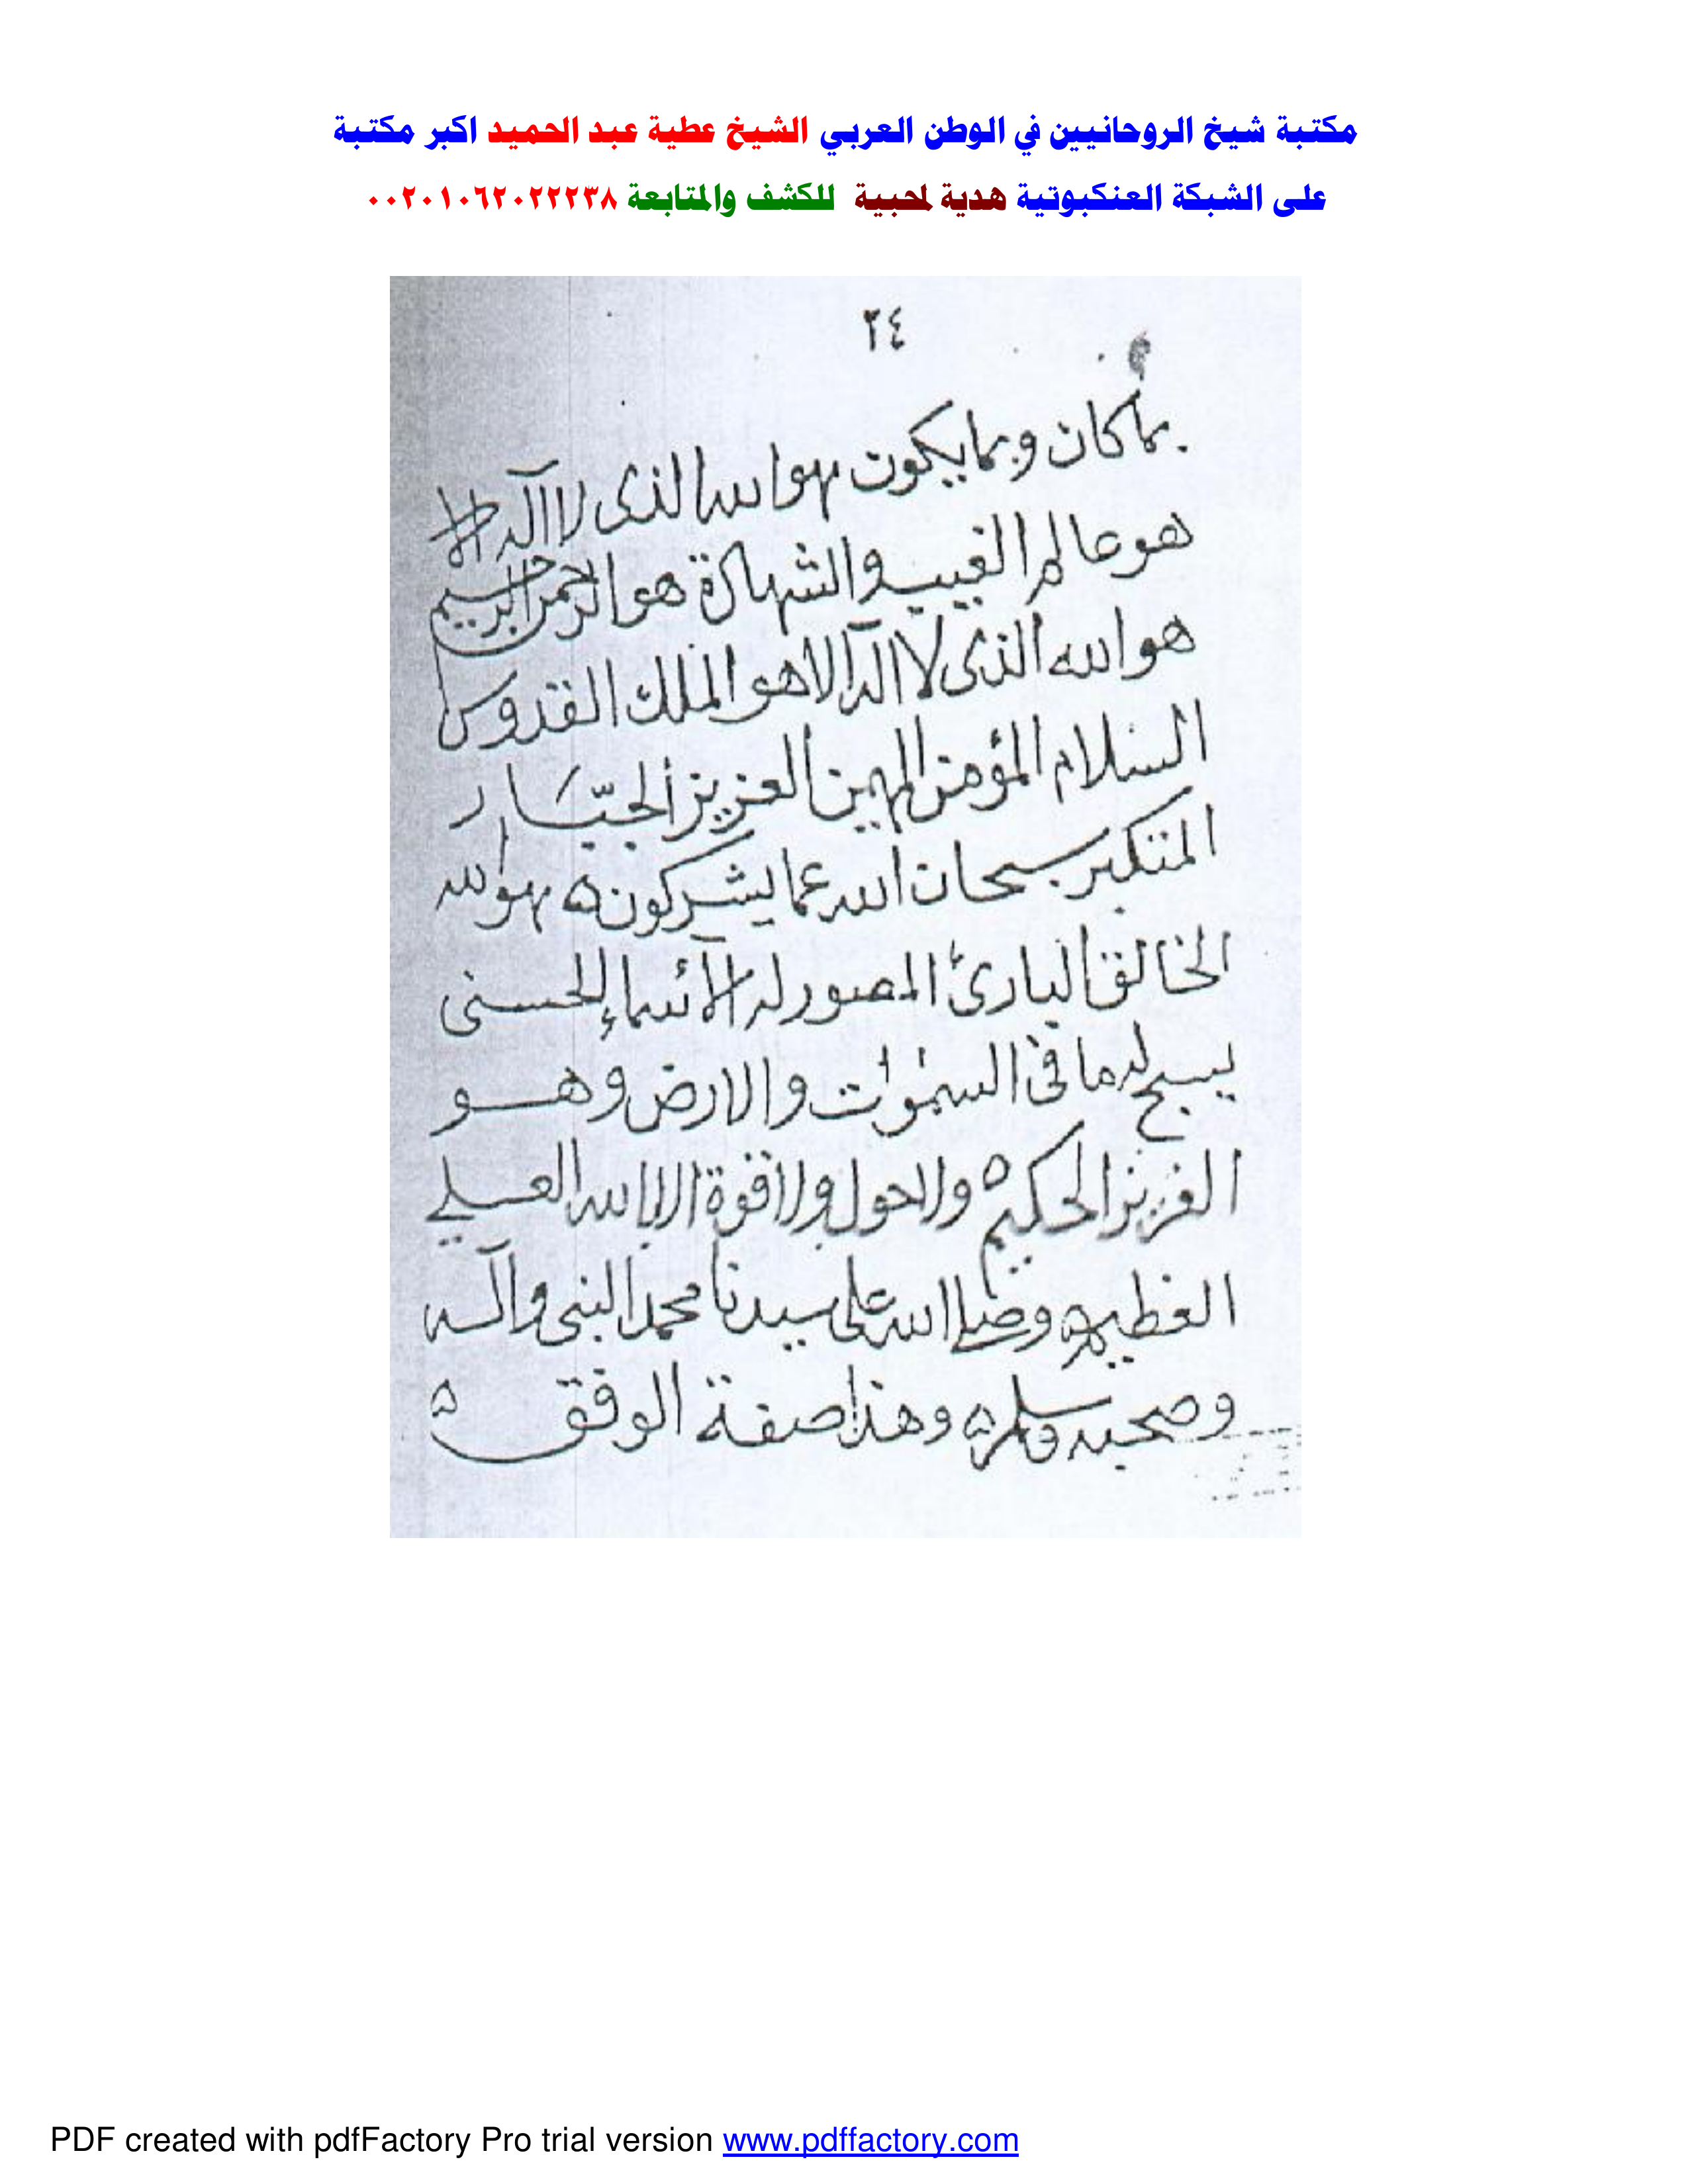 مكتبة شيخ الروحانيين في الوطن العربي الشيخ عطية عبد الحميد اكبر مكتبة
على الشبكة العنكبوتية هدية لمحبية للكشف والمتابعة ٠٠٢٠١٠٦٢٠٢٢٢٣٨
٢٤
بما كان وبما يكون هو الله الذى لا اله الا
هو عالم الغيب والشهادة هو الرحمن الرحيم
هو الله الذى لا اله الا هو الملك القدوس
السلام المؤمن المهيمن العزيز الجبّار
المتكبر سبحان الله عما يشركون ه هو الله
الخالق البارئ المصور له الأسماء الحسنى
يسبح له ما فى السموات والارض وهو
العزيز الحكيم ه ولا حول ولا قوة الا بالله العلي
العظيم ه وصلى الله على سيدنا محمد النبى وآله
وصحبه وسلم ه وهذا صفة الوفق ه
PDF created with pdfFactory Pro trial version www.pdffactory.com